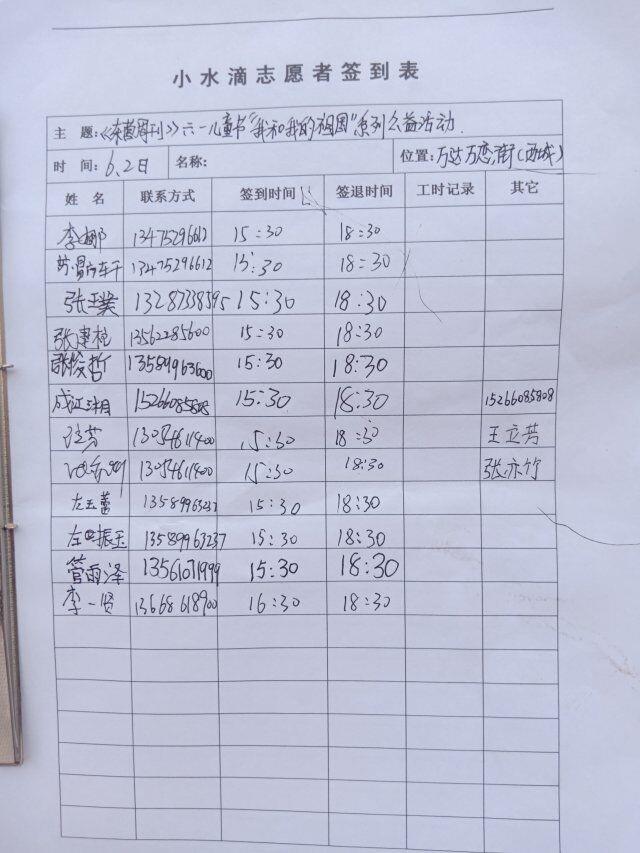 小水滴志愿者签到表
主 题：《东营周刊》六一儿童书"我和我的祖国"系列公益活动
时 间：6.2日 名称： 位置：万达万恋街(西城)
姓 名 联系方式 签到时间 签退时间 工时记录 其它
李娜 13475296612 15:30 18:30
13475296612 15:30 18:30
张玉蝶 13287338595 15:30 18:30
张建 13562285600 15:30 18:30
张俊哲 13589963600 15:30 18:30
成江 15266085808 15:30 18:30 15266085808
芳 13054611400 15:30 18:30 王立芳
13054611400 15:30 18:30 张亦竹
左玉蕾 13589963237 15:30 18:30
左振玉 13589963237 15:30 18:30
管雨泽 13561071999 15:30 18:30
李一贤 13668618900 16:30 18:30